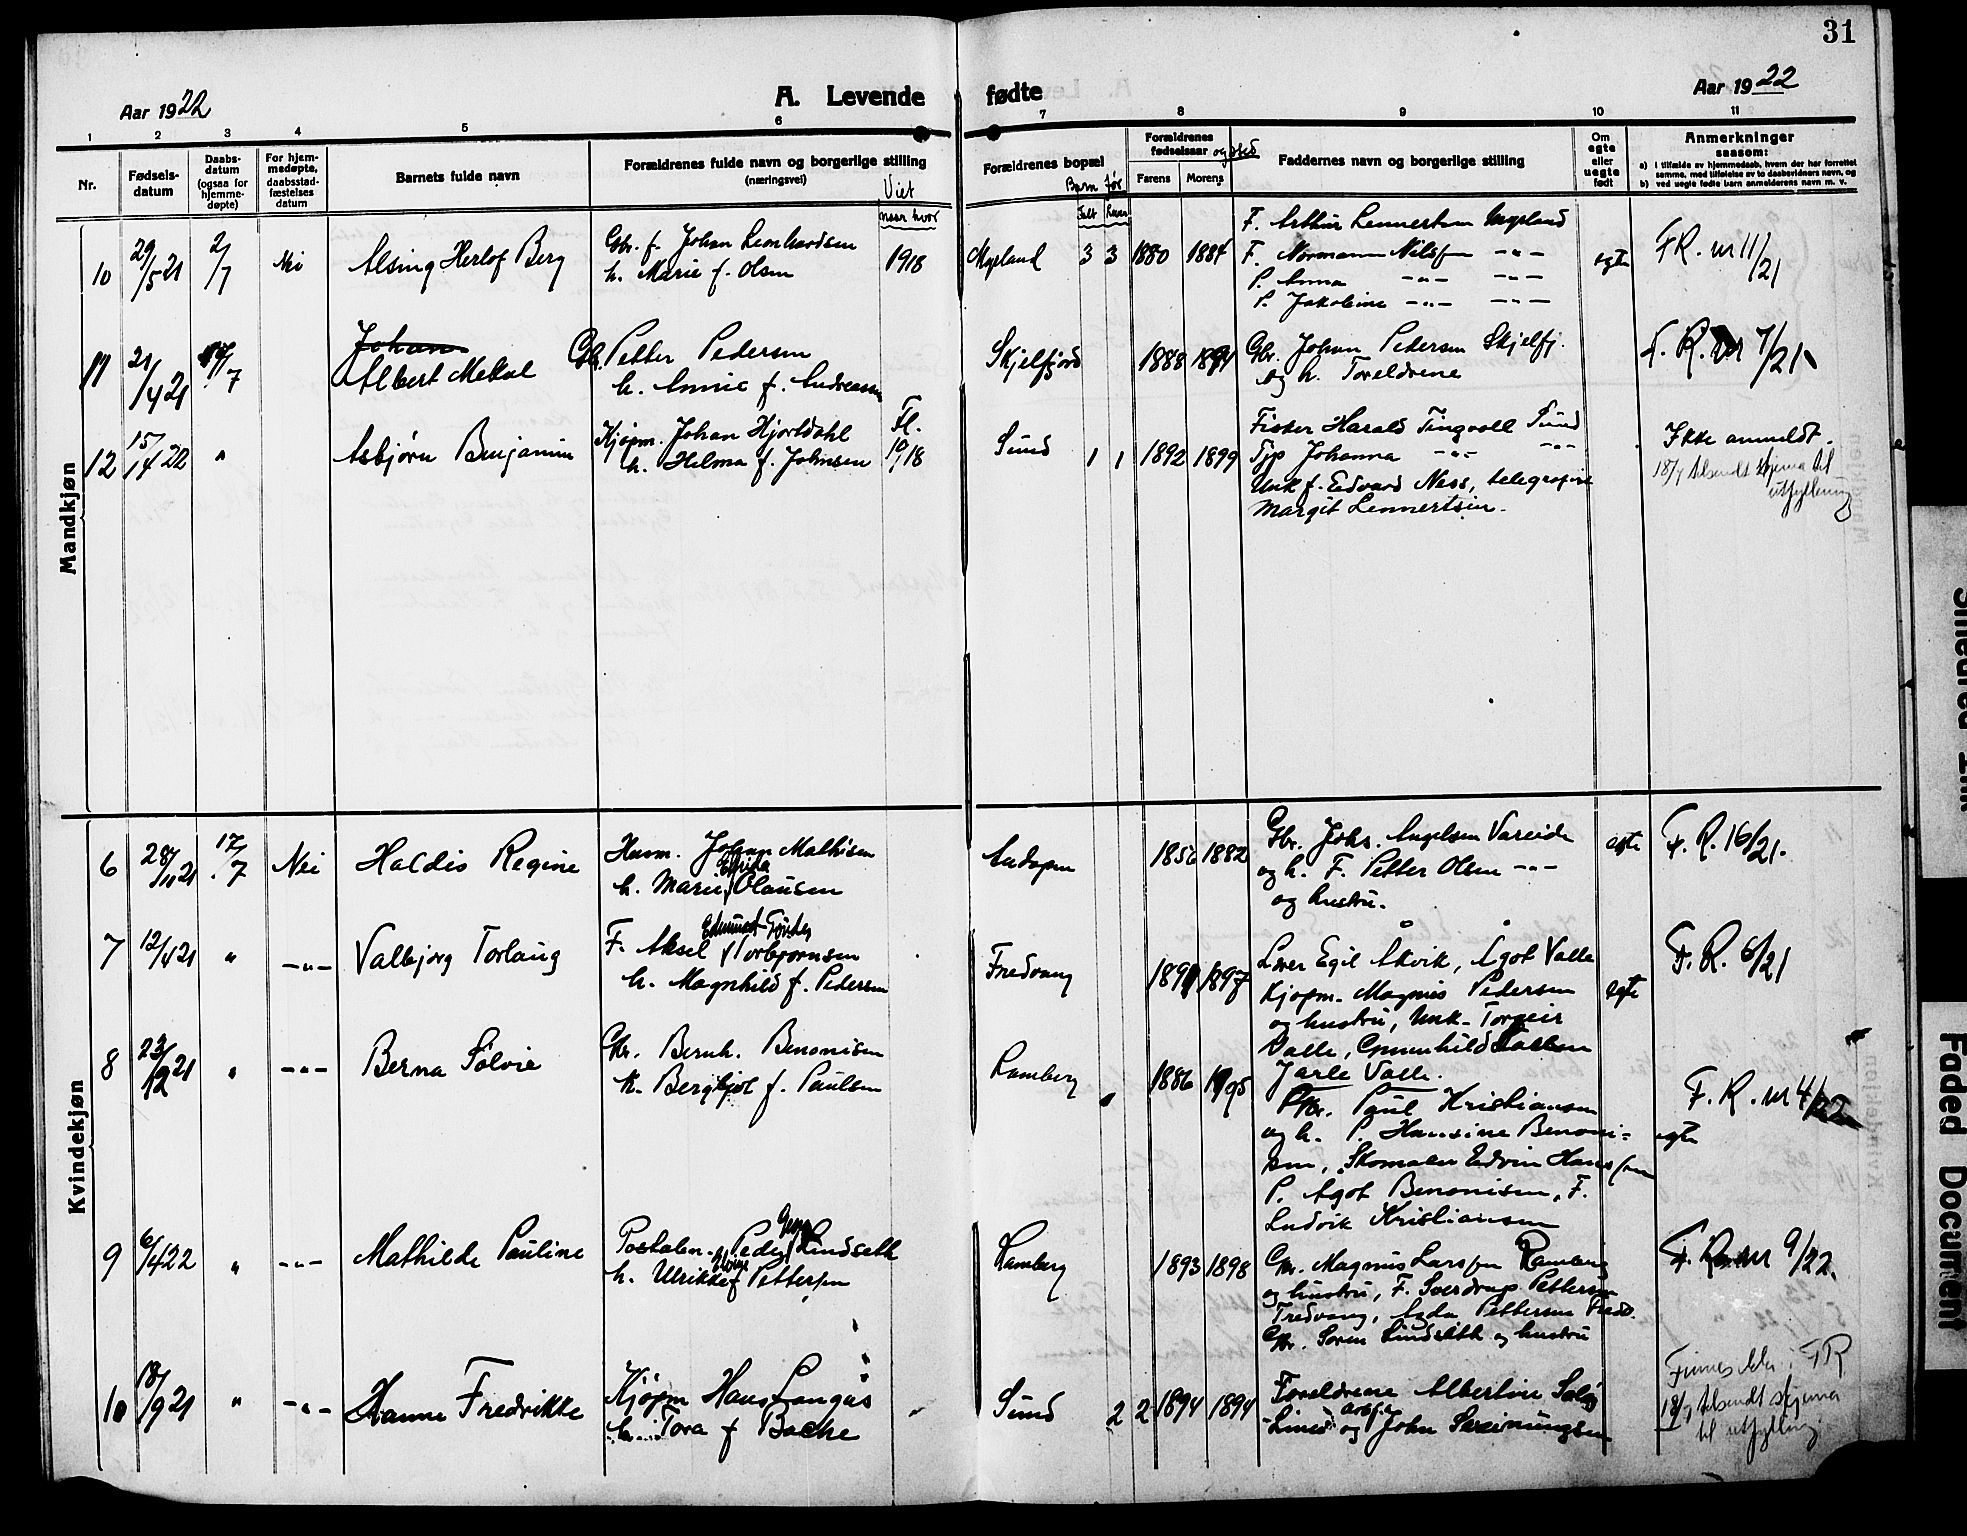 31
Aar 1922
A. Levende fødte
Aar 1922
1 2 3 4 5 6 7 8 9 10 11
Nr.
Fødsels-
datum
Daabs-
datum
(ogsaa for
hjemme-
døpte)
For hjem-
medøpte,
daabsstad-
fæstelses
datum
Barnets fulde navn
Forældrenes fulde navn og borgerlige stilling
(næringsvei)
Viet
naar hvor
Forældrenes bopæl
Barn før
Født
Forældrenes
fødselsaar og sted
Farens Morens
Faddernes navn og borgerlige stilling
Om
egte
eller
uegte
født
Anmerkninger
saasom:
a) i tilfælde av hjemmedaab, hvem der har forrettet
samme, med tilføielse av to daabsvidners navn, og
b) ved uegte fødte barn anmelderens navn m. v.
Mandkjøn
10 29/5 21 2/7 Nei Alsing Herlof Berg
Gbr. f. Johan Leonhardsen
h. Marie f. Olsen
1918
Mysland 3 3 1880 1884
F. Arthur Lennertsen Mysland
F. Normann Nilssen -"-
P. Anna -"- -"-
P. Jakobine -"- -"-
egte
FR. nr 11/21
11 21/4 21 17/7
Johan
Albert Mekal
Gbr. Petter Pedersen
h. Annie f. Andreassen
Skjelfjord 1888 1891
Gbr. Johan Pedersen Skjelfj.
og h. Foreldrene
F. R. nr 7/21.
12 15/4 22 " Asbjørn Benjamin
Kjøpm. Johan Hjortdahl
h. Helma f. Johnsen
Fl.
10/18
Sund 1 1 1892 1899
Fisker Harald Tingvoll Sund
Tjp Johanna -"- -"-
Unk f. Edvard Ness, telegrafist
Margit Lennertsen.
Ikke anmeldt.
18/7 tilsendt skjema til
utfylling
Kvindekjøn
6 28/11 21 17/7 Nei Haldis Regine
Husm. Johan Mathisen
h. Marie Elvida Olausen
Andopen 1856 1882
Gbr. Johs. Angelsen Vareide
og h. F. Petter Olsen -"-
og hustru.
egte
F. R. 16/21.
7 12/4 21 " -"- Valbjørg Torlaug
Edmund
F. Aksel Torbjørnsen
h. Magnhild f. Pedersen
Fredvang 1891 1897
Lærer Egil Åkvik, Ågot Valle
Kjøpm. Magnus Pedersen
og hustru, Unk. Torgeir
Valle, Gunnhild Valle
Jarle Valle.
egte
F. R. 6/21
8 23/12 21 " -"- Berna Sølvie
Gbr. Bernh. Benonisen
h. Bergljot f. Paulsen
Ramberg 1886 1895
Gbr. Paul Kristiansen
og h. P. Hansine Benoni=
sen, Skomaker Edvin Hanssen
P. Agot Benonisen, F.
Ludvik Kristiansen
egte
F. R. nr 4/22
9 6/4 22 " -"- Mathilde Pauline
Postaben. Peder Lindseth
h. Ulrikke f Pettersen
Ramberg 1893 1898
Gbr. Magnus Larssen Ramberg
og hustru, F. Sverdrup Pettersen
Fredvang, Agda Pettersen Fredv.
Gbr. Søren Lindseth og hustru
F. R. nr 9/22.
10 18/9 21 " -"- Hanna Fredrikke
Kjøpm Hans Langås
h. Tora f Bache
Sund 2 2 1894 1894
Foreldrene Albertine
og John Steinungsen
Finnes ikke i FR
18/7 tilsendt skjema
til utfylling
Smeared Ink
Faded Document